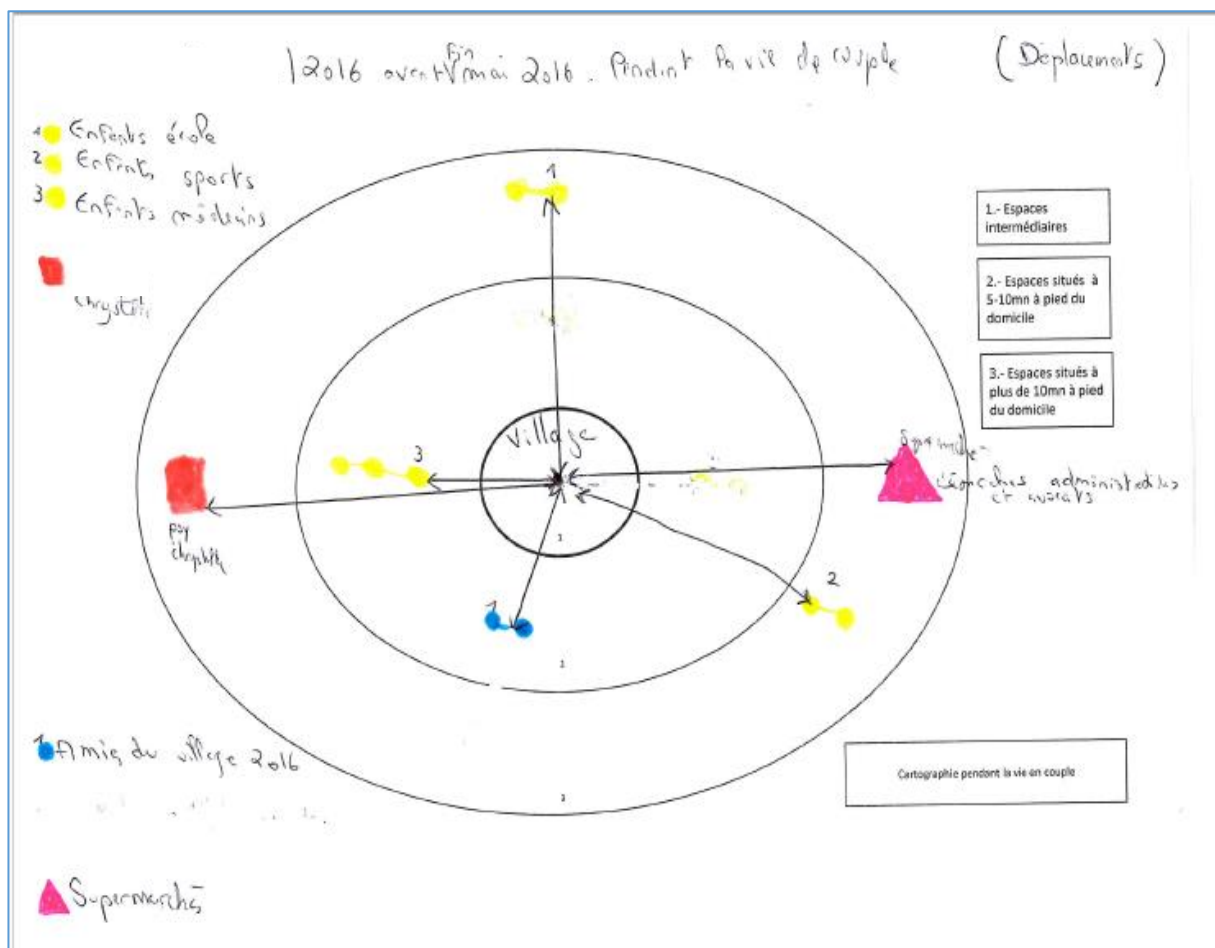 2016 avant fin mai 2016. Pendant la vie de couple (Déplacements)
1 Enfants école
2 Enfants sports
3 Enfants médecins
1
1.- Espaces
intermédiaires
2.- Espaces situés à
5-10mn à pied du
domicile
3.- Espaces situés à
plus de 10mn à pied
du domicile
village
3
démarches administratives
et avocats
psy
1
2
1
2
3
1 Amies du village 2016
Cartographie pendant la vie en couple
Supermarchés